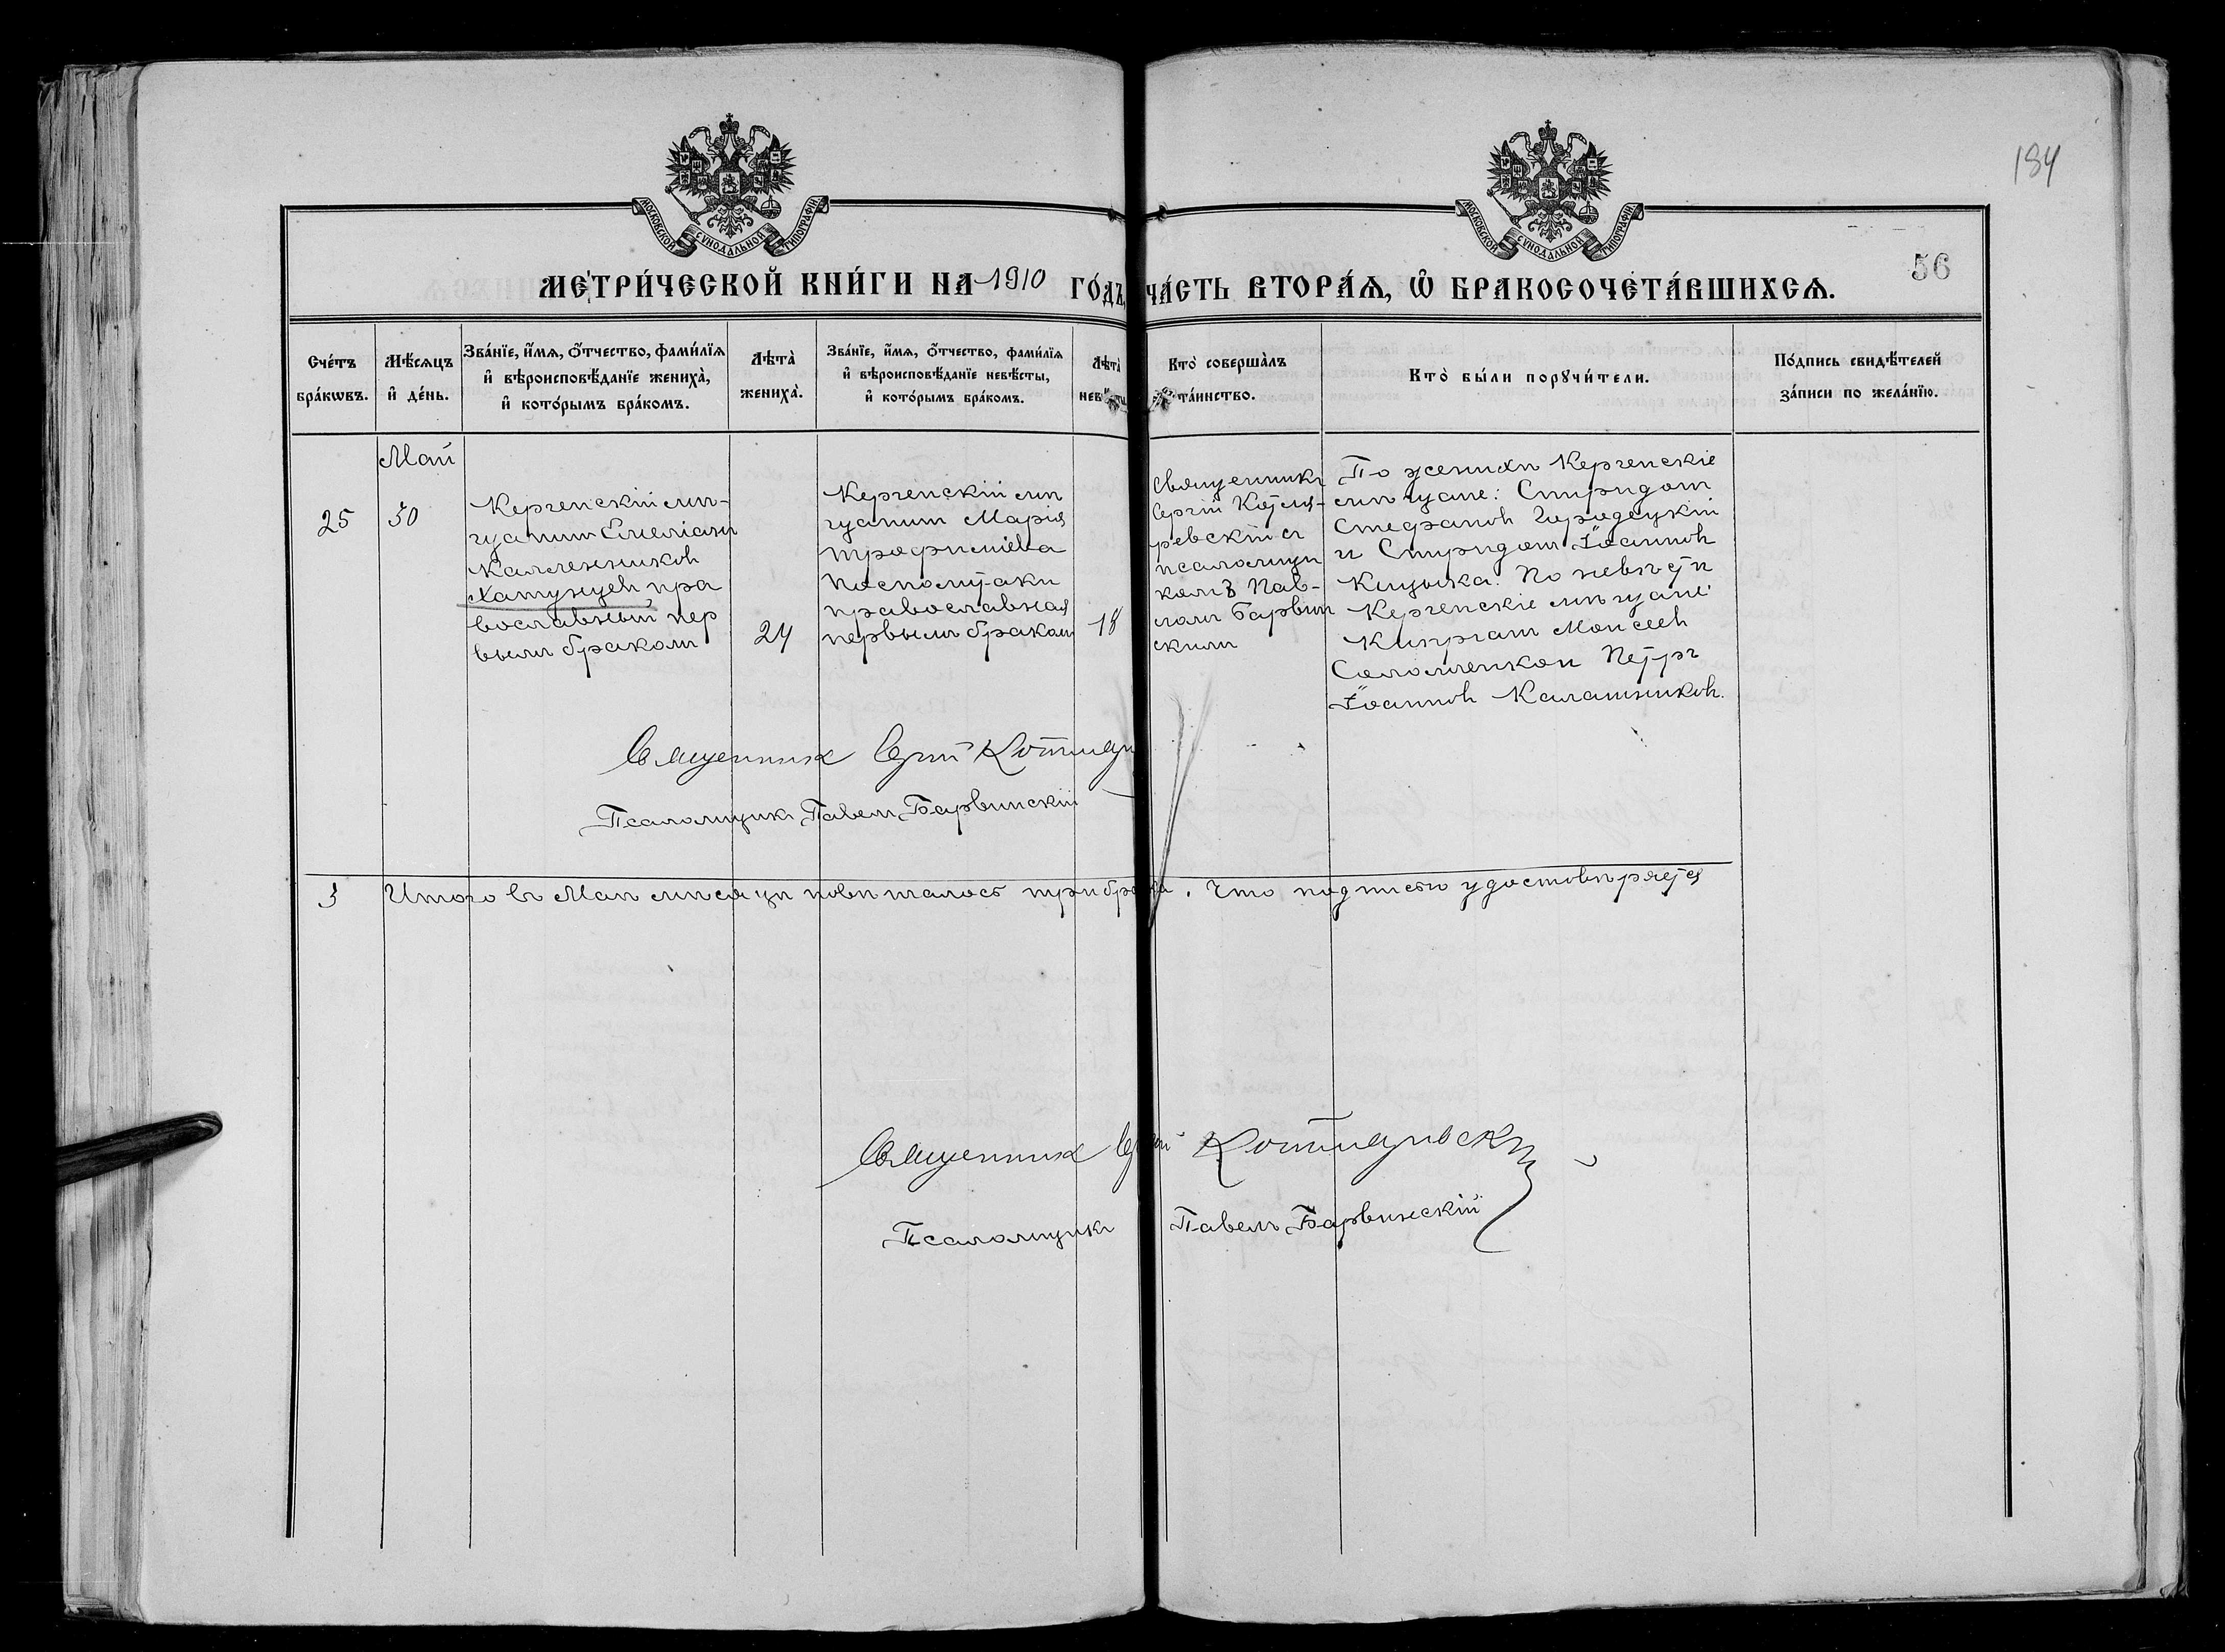 184
МОСКОВСКОЙ СѴНОДАЛЬНОЙ ТИПОГРАФІИ
МОСКОВСКОЙ СѴНОДАЛЬНОЙ ТИПОГРАФІИ
56
МЕТРИ́ЧЕСКОЙ КНИ́ГИ НА 1910 ГО́ДЪ, ЧА́СТЬ ВТОРА́Ѧ, Ѡ҆ БРАКОСОЧЕТА́ВШИХСѦ.
Сче́тъ
бра́кѡвъ.
Мѣ́сѧцъ
и҆ де́нь.
Зва́нїе, и҆́мѧ, ѻ҆́тчество, фами́лїѧ
и҆ вѣроисповѣ́данїе жениха̀,
и҆ кото́рымъ бра́комъ.
Лѣта̀
жениха̀.
Зва́нїе, и҆́мѧ, ѻ҆́тчество, фами́лїѧ
и҆ вѣроисповѣ́данїе невѣ́сты,
и҆ кото́рымъ бра́комъ.
Лѣта̀
Кто̀ соверша́лъ
та́инство.
Кто̀ бы́ли порꙋчи́тели.
По́дпись свидѣ́телей
за́писи по жела́нїю.
Май
25
30
Керченскій мѣ-
щанинъ Емеліанъ
Хатунцевъ пра
вославный пер
вымъ бракомъ
24
Керченскій мѣ
щанинъ Марія
Трофимiева
православная
первымъ бракомъ
18
Священникъ
Сергій Котля-
ревскій съ
псаломщи
комъ Пав-
ломъ Барвин
скимъ
По женихѣ Керченскіе
мѣщане: Спиридонъ
Стефановъ Городецкій
и Спиридонъ Іоанновъ
Кицька. По невѣстѣ
Керченскіе мѣщане:
Кипріанъ Моисеевъ
Соломченко и Петръ
Іоанновъ Калашниковъ.
Священник Сергій
Псаломщикъ Павелъ Барвинскій
3 Итого въ Маѣ мѣсяцѣ повѣнчалось три брака. Что подписью удостовѣряется
Священник Сергій Котляревскій
Псаломщикъ Павелъ Барвинскій